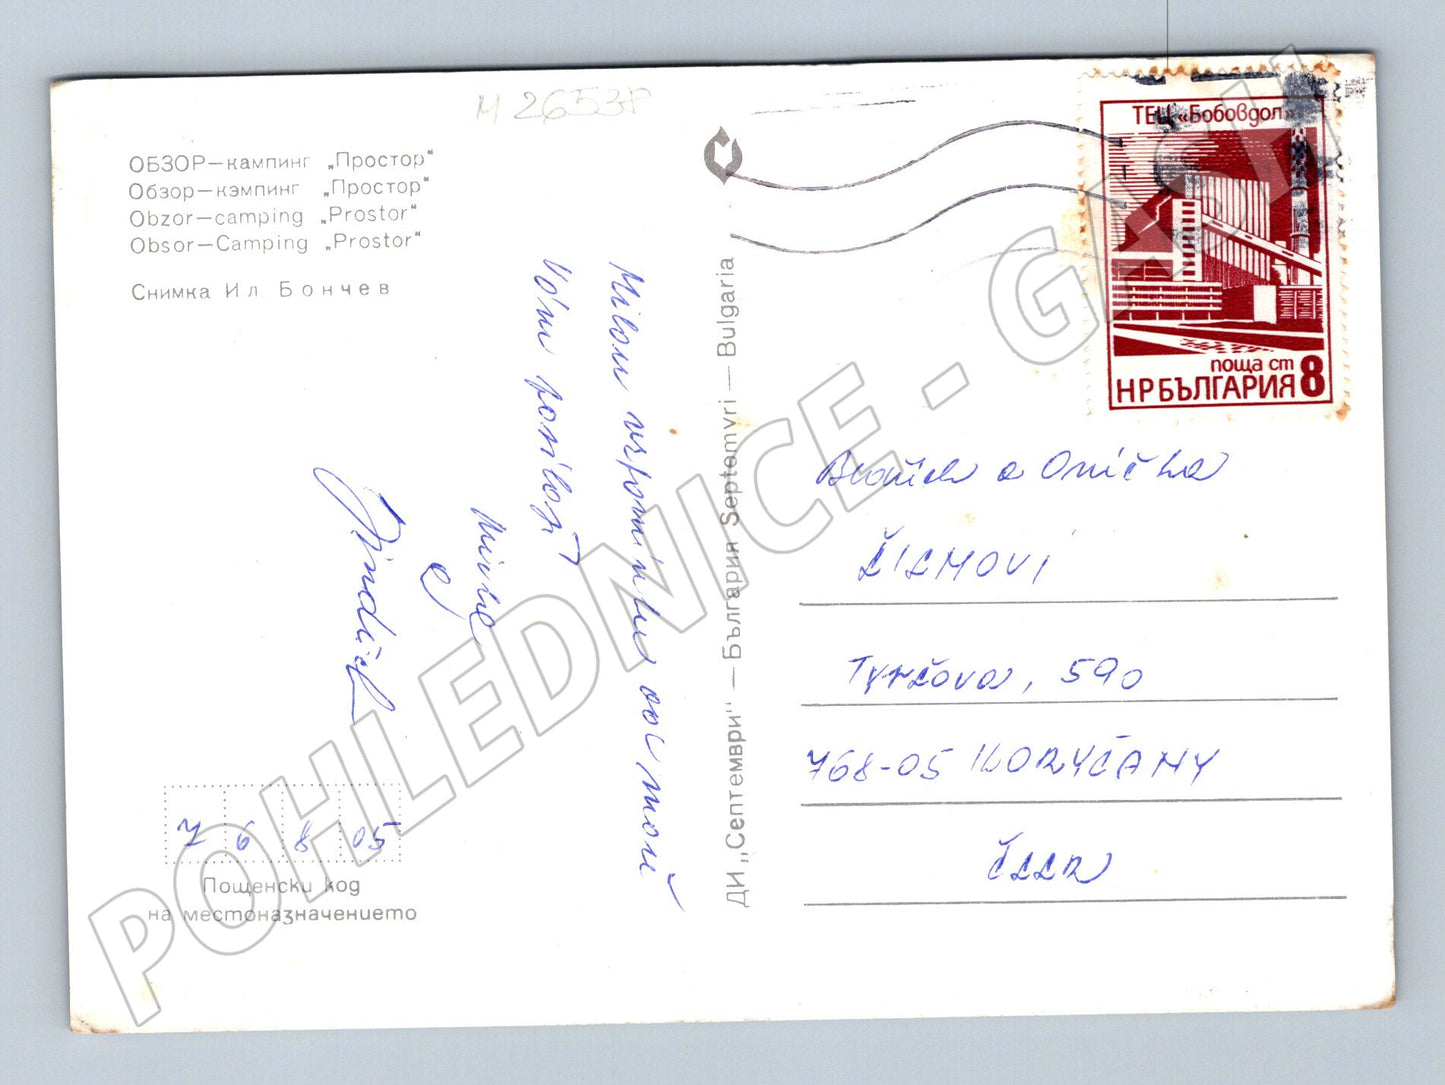 M 26538
ОБЗОР—кампинг „Простор“
Обзор—кэмпинг „Простор“
Obzor—camping „Prostor“
Obsor—Camping „Prostor“
Снимка Ил Бончев
Milou vzpomínku od moří
Vám posílají
Mirka
Jindřich
7 6 8 05
Пощенски код
на местоназначението
ДИ „Септември" — България Septemvri — Bulgaria
ТЕЦ «Бобовдол»
поща ст
НР БЪЛГАРИЯ 8
a Anička
Tyršova, 590
768-05 KORYČANY
ČSSR
POHLEDNICE - GASH